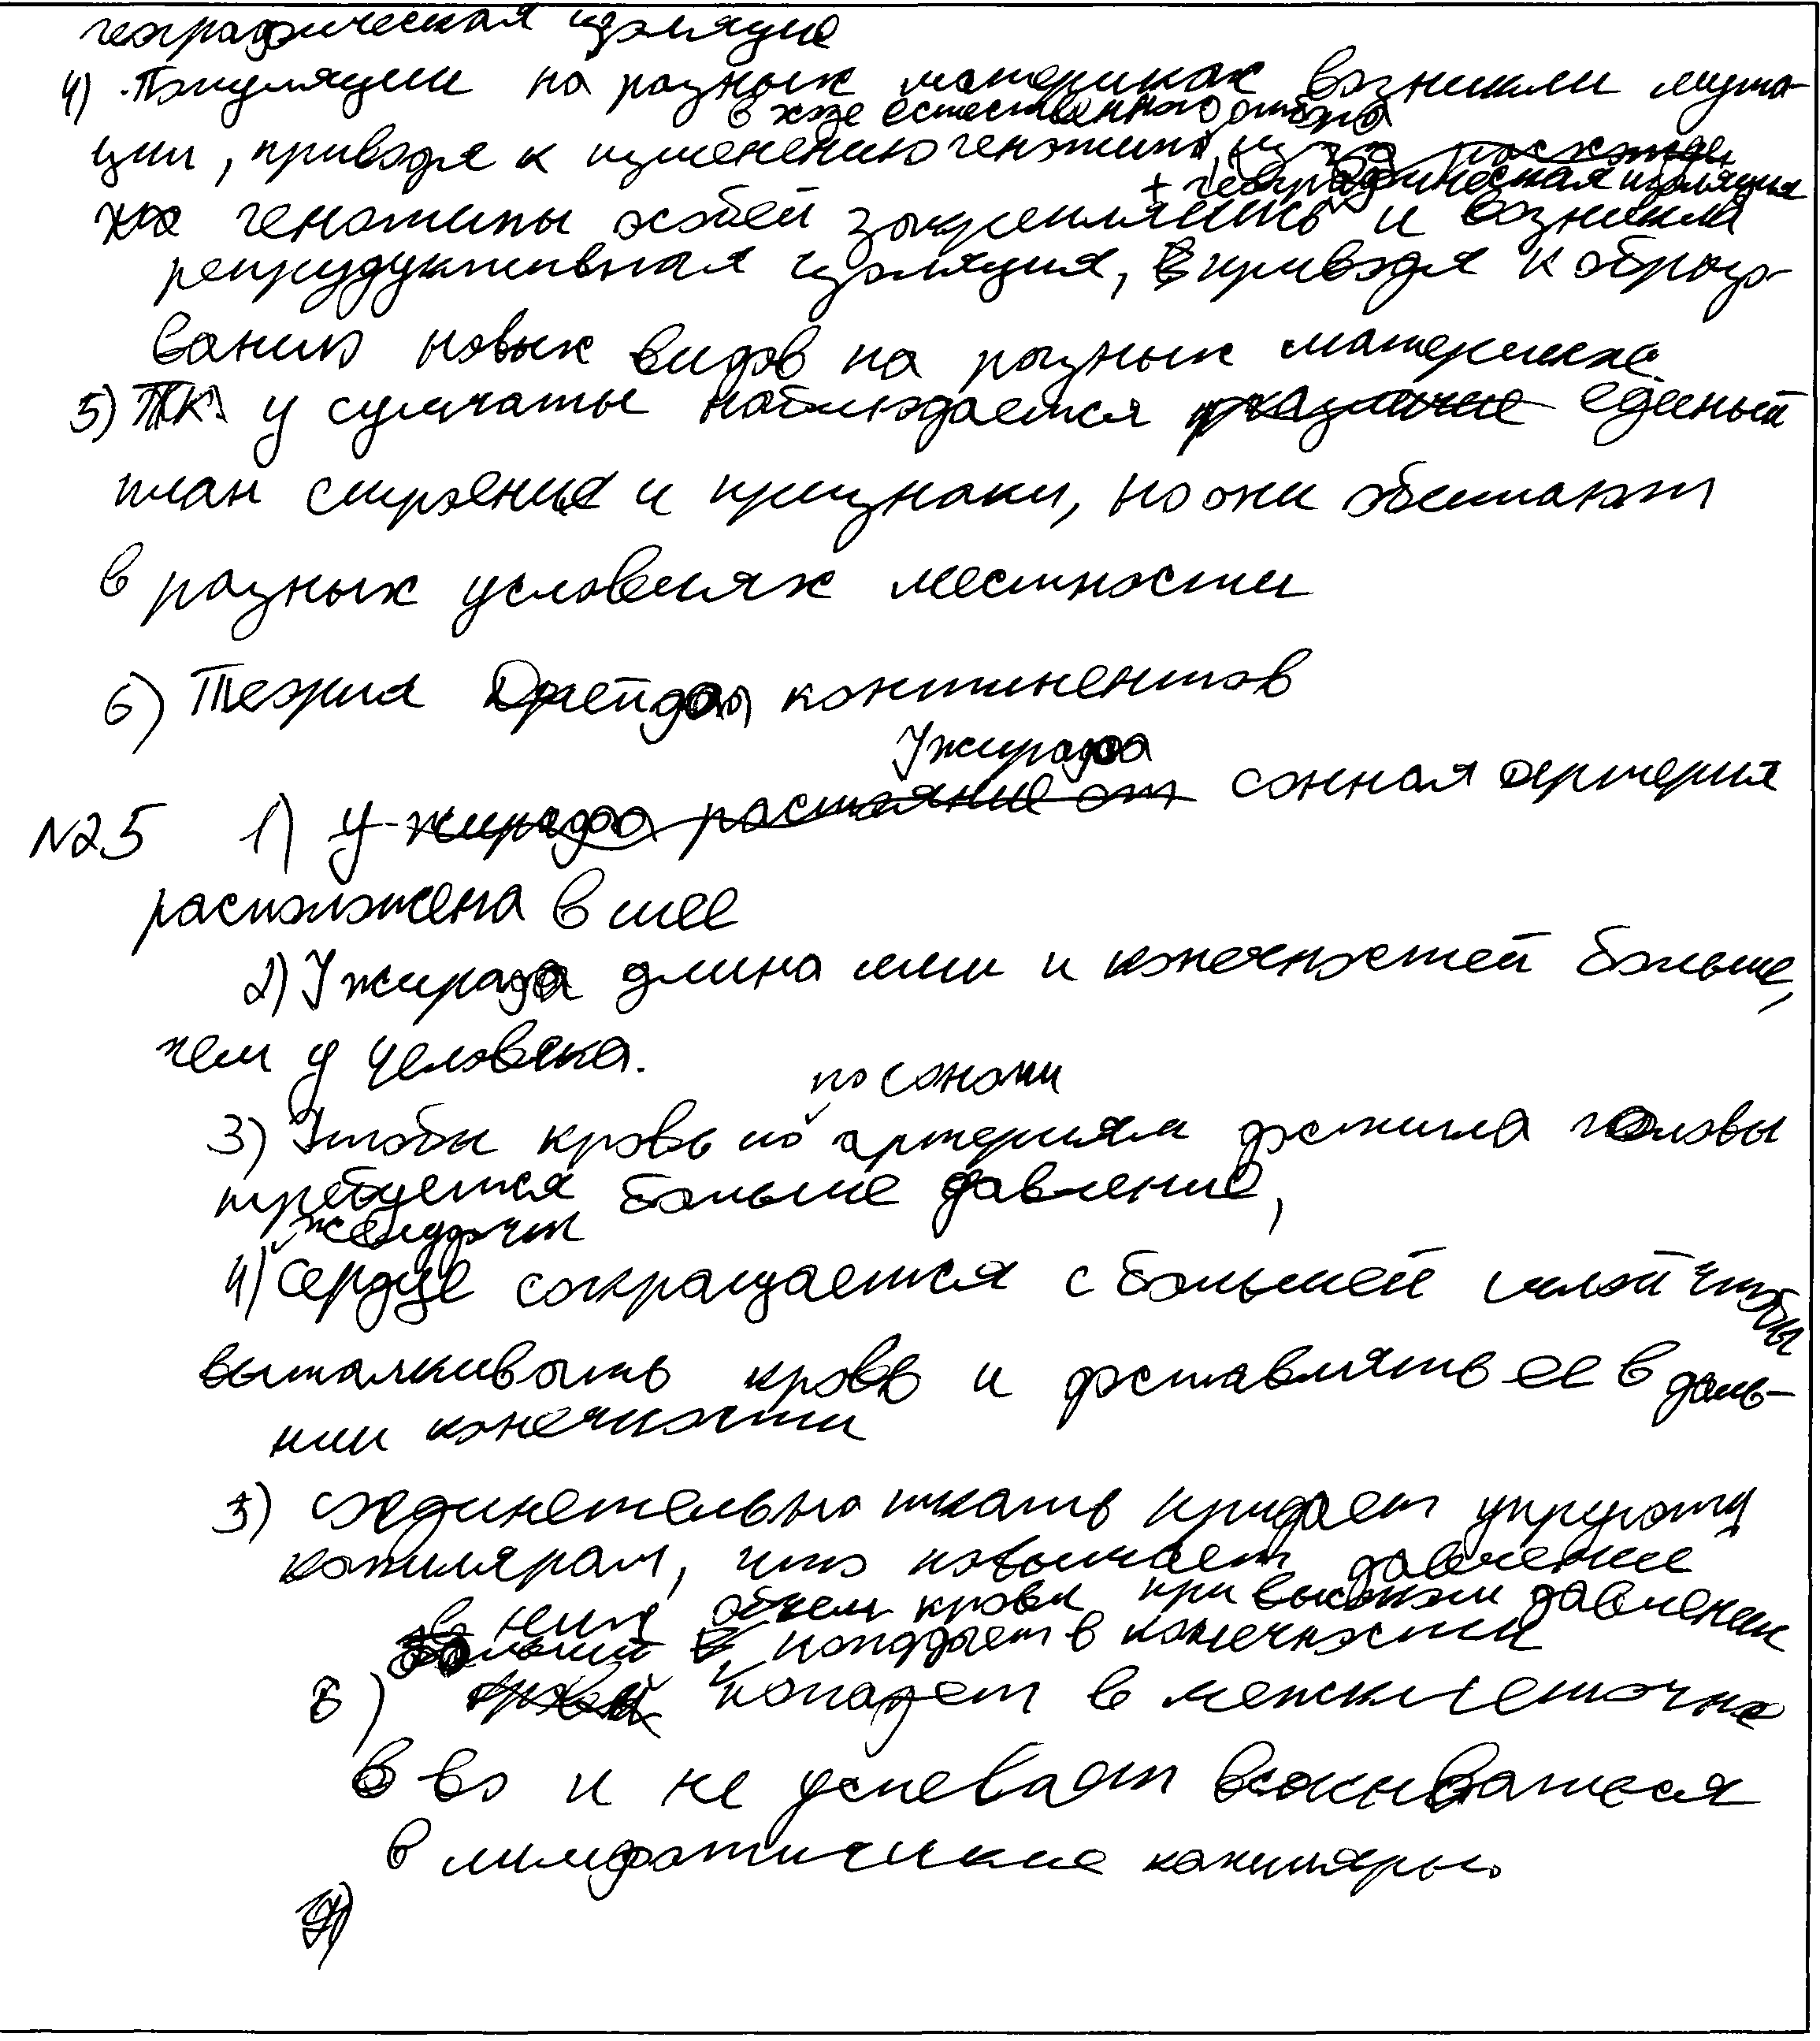 географическая изоляция
4) Популяции на разных материках возникли мута-
в ходе естественного отбора
ции, приводя к изменению генотипа, из за
+ географическая изоляция
генотипы особей закреплялись и возникла
репрудуктивная изоляция, приводя к образо-
ванию новых видов на разных материках.
5) Т.К. у сумчаты наблюдается различие единый
план строения и признаки, но они обитают
в разных условиях местности
6) Теория Дрейфа континентов
У жирафа
№25 1) У жирафа растояние от сонная артерия
расположена в шее
2) У жирафа длина шеи и конечностей больше,
чем у человека.
по сонным
3) Чтобы кровь по артериям достигла головы
требуется больше давление,
желудочки
4) Сердце сокращается с большей силой чтобы
выталкивать кровь и доставлять ее в даль-
нии конечности
5) соединительно ткань придает упругость
капилярам, что повышает давление
в них объем крови при высоком давлении
больший попадает в конечности
6) попадает в межклеточное
в во и не успевает всасываться
в лимфатические капиляры.